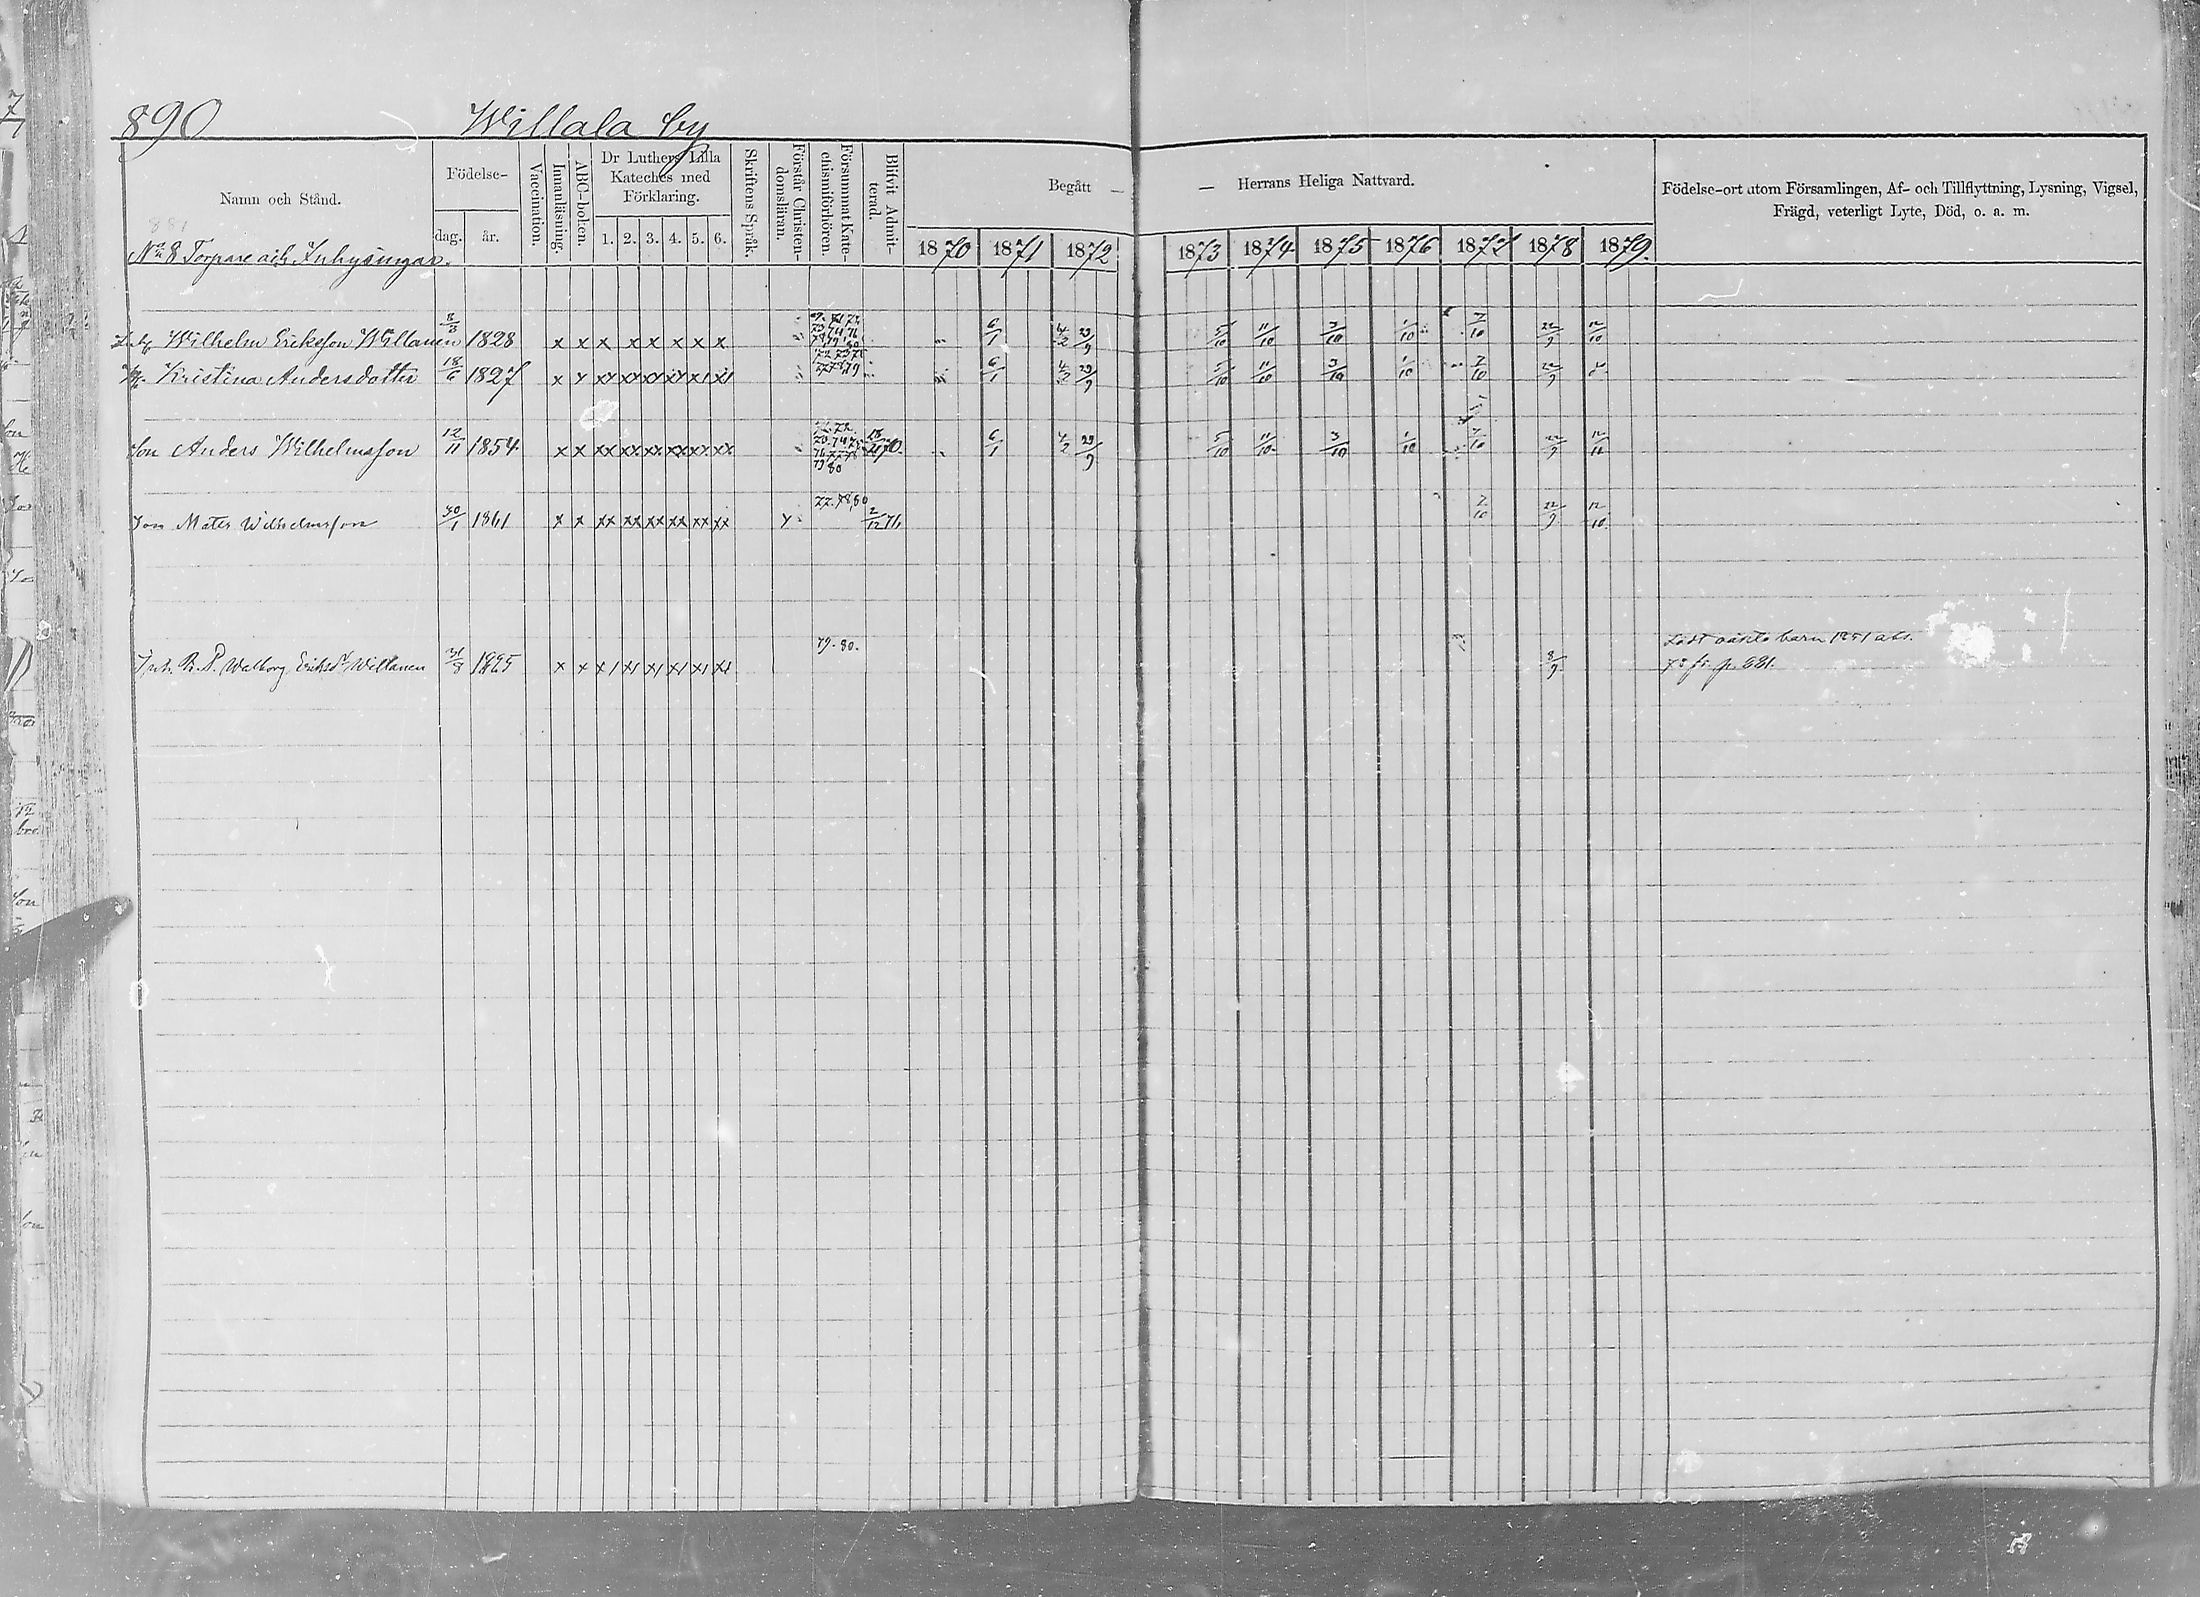 890 Willala by
Namn och Stånd.
Födelse-
dag. år.
Vaccination.
Innanläsning.
ABC-boken.
Dr Luthers Lilla Kateches med Förklaring.
1. 2. 3. 4. 5. 6.
Skriftens Språk.
Förstår Christendomsläran.
Försummat Katechismiförhören.
Blifvit Admitterad.
Begått — — Herrans Heliga Nattvard.
1870 1871 1872 1873 1874 1875 1876 1877 1878 1879.
Födelse-ort utom Församlingen, Af- och Tillflyttning, Lysning, Vigsel,
Frägd, veterligt Lyte, Död, o. a. m.
881
No 8 Torpare och Inhysingar.
Wilhelm Eriksson Willanen 8/3 1828 x x x x x x x x 6/1 4/2 29/9 5/10 11/10 3/10 1/10 7/10 22/9 12/10
Kristina Andersdotter 18/6 1827 6/1 4/2 29/9 5/10 11/10 3/10 1/10 7/10 22/9
Son Anders Wilhelmsson 12/11 1854 x x xx xx xx xx xx xx 6/1 4/2 29/9 5/10 11/10 3/10 1/10 7/10 22/9
Son Mats Wilhelmsson 30/1 1861 x x xx xx xx xx xx xx 77. 78, 80 2/12 76 7/10 22/9 12/10
79. 80.
Walborg Eriksdr Willanen 31/8 8/9 fr. p. 881.